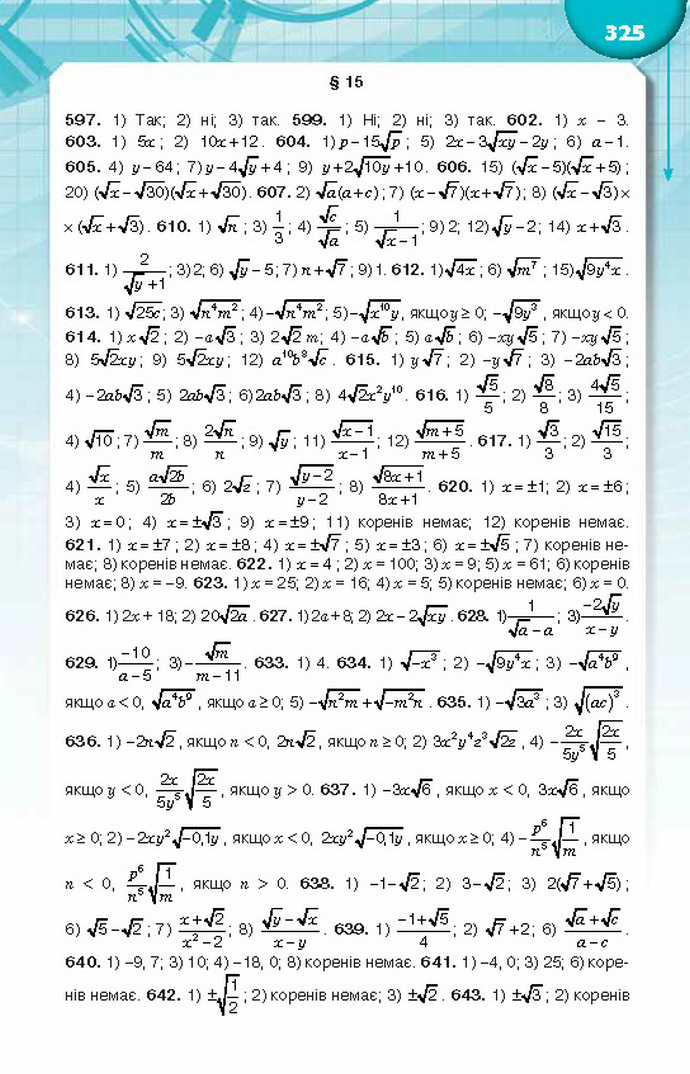 325
§ 15
597. 1) Так; 2) ні; 3) так. 599. 1) Ні; 2) ні; 3) так. 602. 1) x − 3.
603. 1) 5x; 2) 10x+12. 604. 1) p−15√p; 5) 2x−3√xy−2y; 6) a−1.
605. 4) y−64; 7) y−4√y+4; 9) y+2√10y+10. 606. 15) (√x−5)(√x+5);
20) (√x−√30)(√x+√30). 607. 2) √a(a+c); 7) (x−√7)(x+√7); 8) (√x−√3)×
×(√x+√3). 610. 1) √n; 3) 1/3; 4) √c/√a; 5) 1/(√x−1); 9) 2; 12) √y−2; 14) x+√3.
611. 1) 2/(√y+1); 3) 2; 6) √y−5; 7) n+√7; 9) 1. 612. 1) √4x; 6) √m⁷; 15) √9y⁴x.
613. 1) √25c; 3) √n⁴m²; 4) −√n⁴m²; 5) −√x¹⁰y, якщо y ≥ 0; −√9y³, якщо y < 0.
614. 1) x√2; 2) −a√3; 3) 2√2 m; 4) −a√b; 5) a√b; 6) −xy√5; 7) −xy√5;
8) 5√2xy; 9) 5√2xy; 12) a¹⁰b⁸√c. 615. 1) y√7; 2) −y√7; 3) −2ab√3;
4) −2ab√3; 5) 2ab√3; 6) 2ab√3; 8) 4√2x²y¹⁰. 616. 1) √5/5; 2) √8/8; 3) 4√5/15;
4) √10; 7) √m/m; 8) 2√n/n; 9) √y; 11) √(x−1)/(x−1); 12) √(m+5)/(m+5). 617. 1) √3/3; 2) √15/3;
4) √x/x; 5) a√2b/2b; 6) 2√z; 7) √(y−2)/(y−2); 8) √(8x+1)/(8x+1). 620. 1) x=±1; 2) x=±6;
3) x=0; 4) x=±√3; 9) x=±9; 11) коренів немає; 12) коренів немає.
621. 1) x=±7; 2) x=±8; 4) x=±√7; 5) x=±3; 6) x=±√5; 7) коренів не-
має; 8) коренів немає. 622. 1) x = 4; 2) x = 100; 3) x = 9; 5) x = 61; 6) коренів
немає; 8) x = −9. 623. 1) x = 25; 2) x = 16; 4) x = 5; 5) коренів немає; 6) x = 0.
626. 1) 2x + 18; 2) 20√2a. 627. 1) 2a+8; 2) 2x−2√xy. 628. 1) 1/(√a−a); 3) −2√y/(x−y).
629. 1) −10/(a−5); 3) −√m/(m−11). 633. 1) 4. 634. 1) √−x³; 2) −√9y⁴x; 3) −√a⁴b⁹,
якщо a < 0, √a⁴b⁹, якщо a ≥ 0; 5) −√n²m+√−m²n. 635. 1) −√3a³; 3) √(ac)³.
636. 1) −2n√2, якщо n < 0, 2n√2, якщо n ≥ 0; 2) 3x²y⁴z³√2z, 4) −2x/5y⁵ √(2x/5),
якщо y < 0, 2x/5y⁵ √(2x/5), якщо y > 0. 637. 1) −3x√6, якщо x < 0, 3x√6, якщо
x ≥ 0; 2) −2xy²√−0,1y, якщо x < 0, 2xy²√−0,1y, якщо x ≥ 0; 4) −p⁶/n⁵ √(1/m), якщо
n < 0, p⁶/n⁵ √(1/m), якщо n > 0. 638. 1) −1−√2; 2) 3−√2; 3) 2(√7+√5);
6) √5−√2; 7) (x+√2)/(x²−2); 8) (√y−√x)/(x−y). 639. 1) (−1+√5)/4; 2) √7+2; 6) (√a+√c)/(a−c).
640. 1) −9, 7; 3) 10; 4) −18, 0; 8) коренів немає. 641. 1) −4, 0; 3) 25; 6) коре-
нів немає. 642. 1) ±√(1/2); 2) коренів немає; 3) ±√2. 643. 1) ±√3; 2) коренів